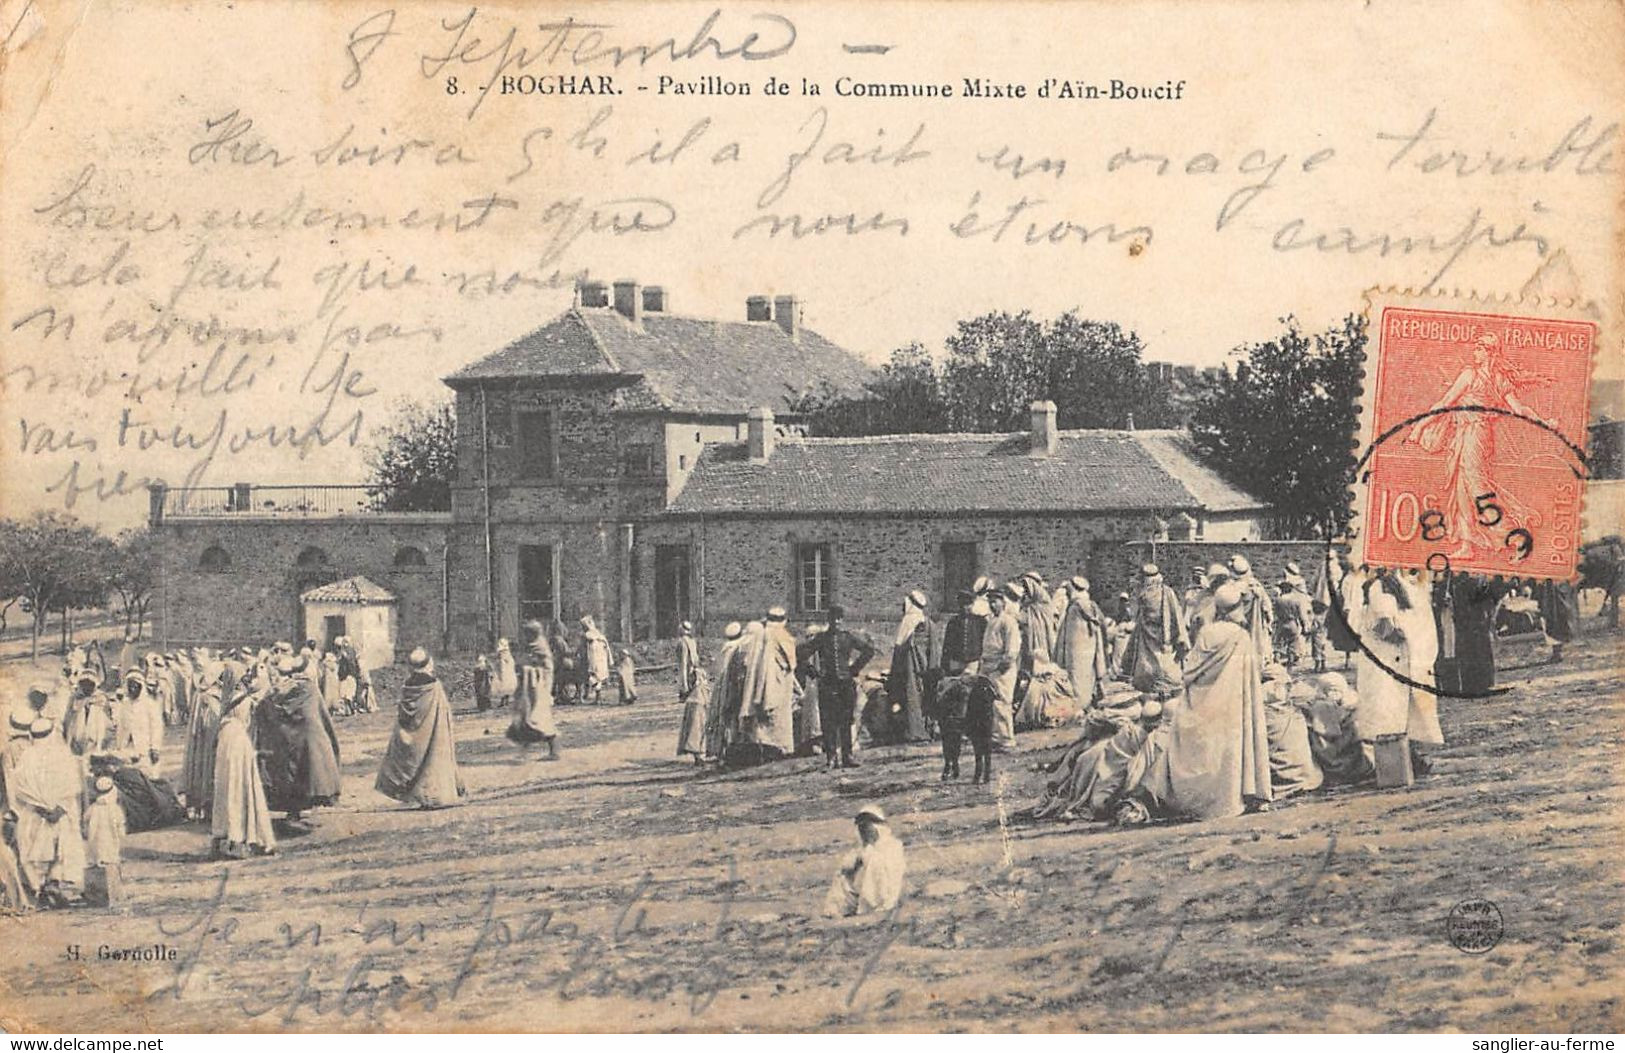 8 Septembre —
8. - BOGHAR. - Pavillon de la Commune Mixte d'Aïn-Boucif
Hier soir a 5h il a fait un orage terrible
heureusement que nous étions campés
cela fait que nous
n'avons pas
mouillé. Je
vais toujours
bien
RÉPUBLIQUE FRANÇAISE
10c
POSTES
8 5
9
Je n'ai pas le temps
plus long
H. Gerdolle
sanglier-au-ferme
delcampe.net